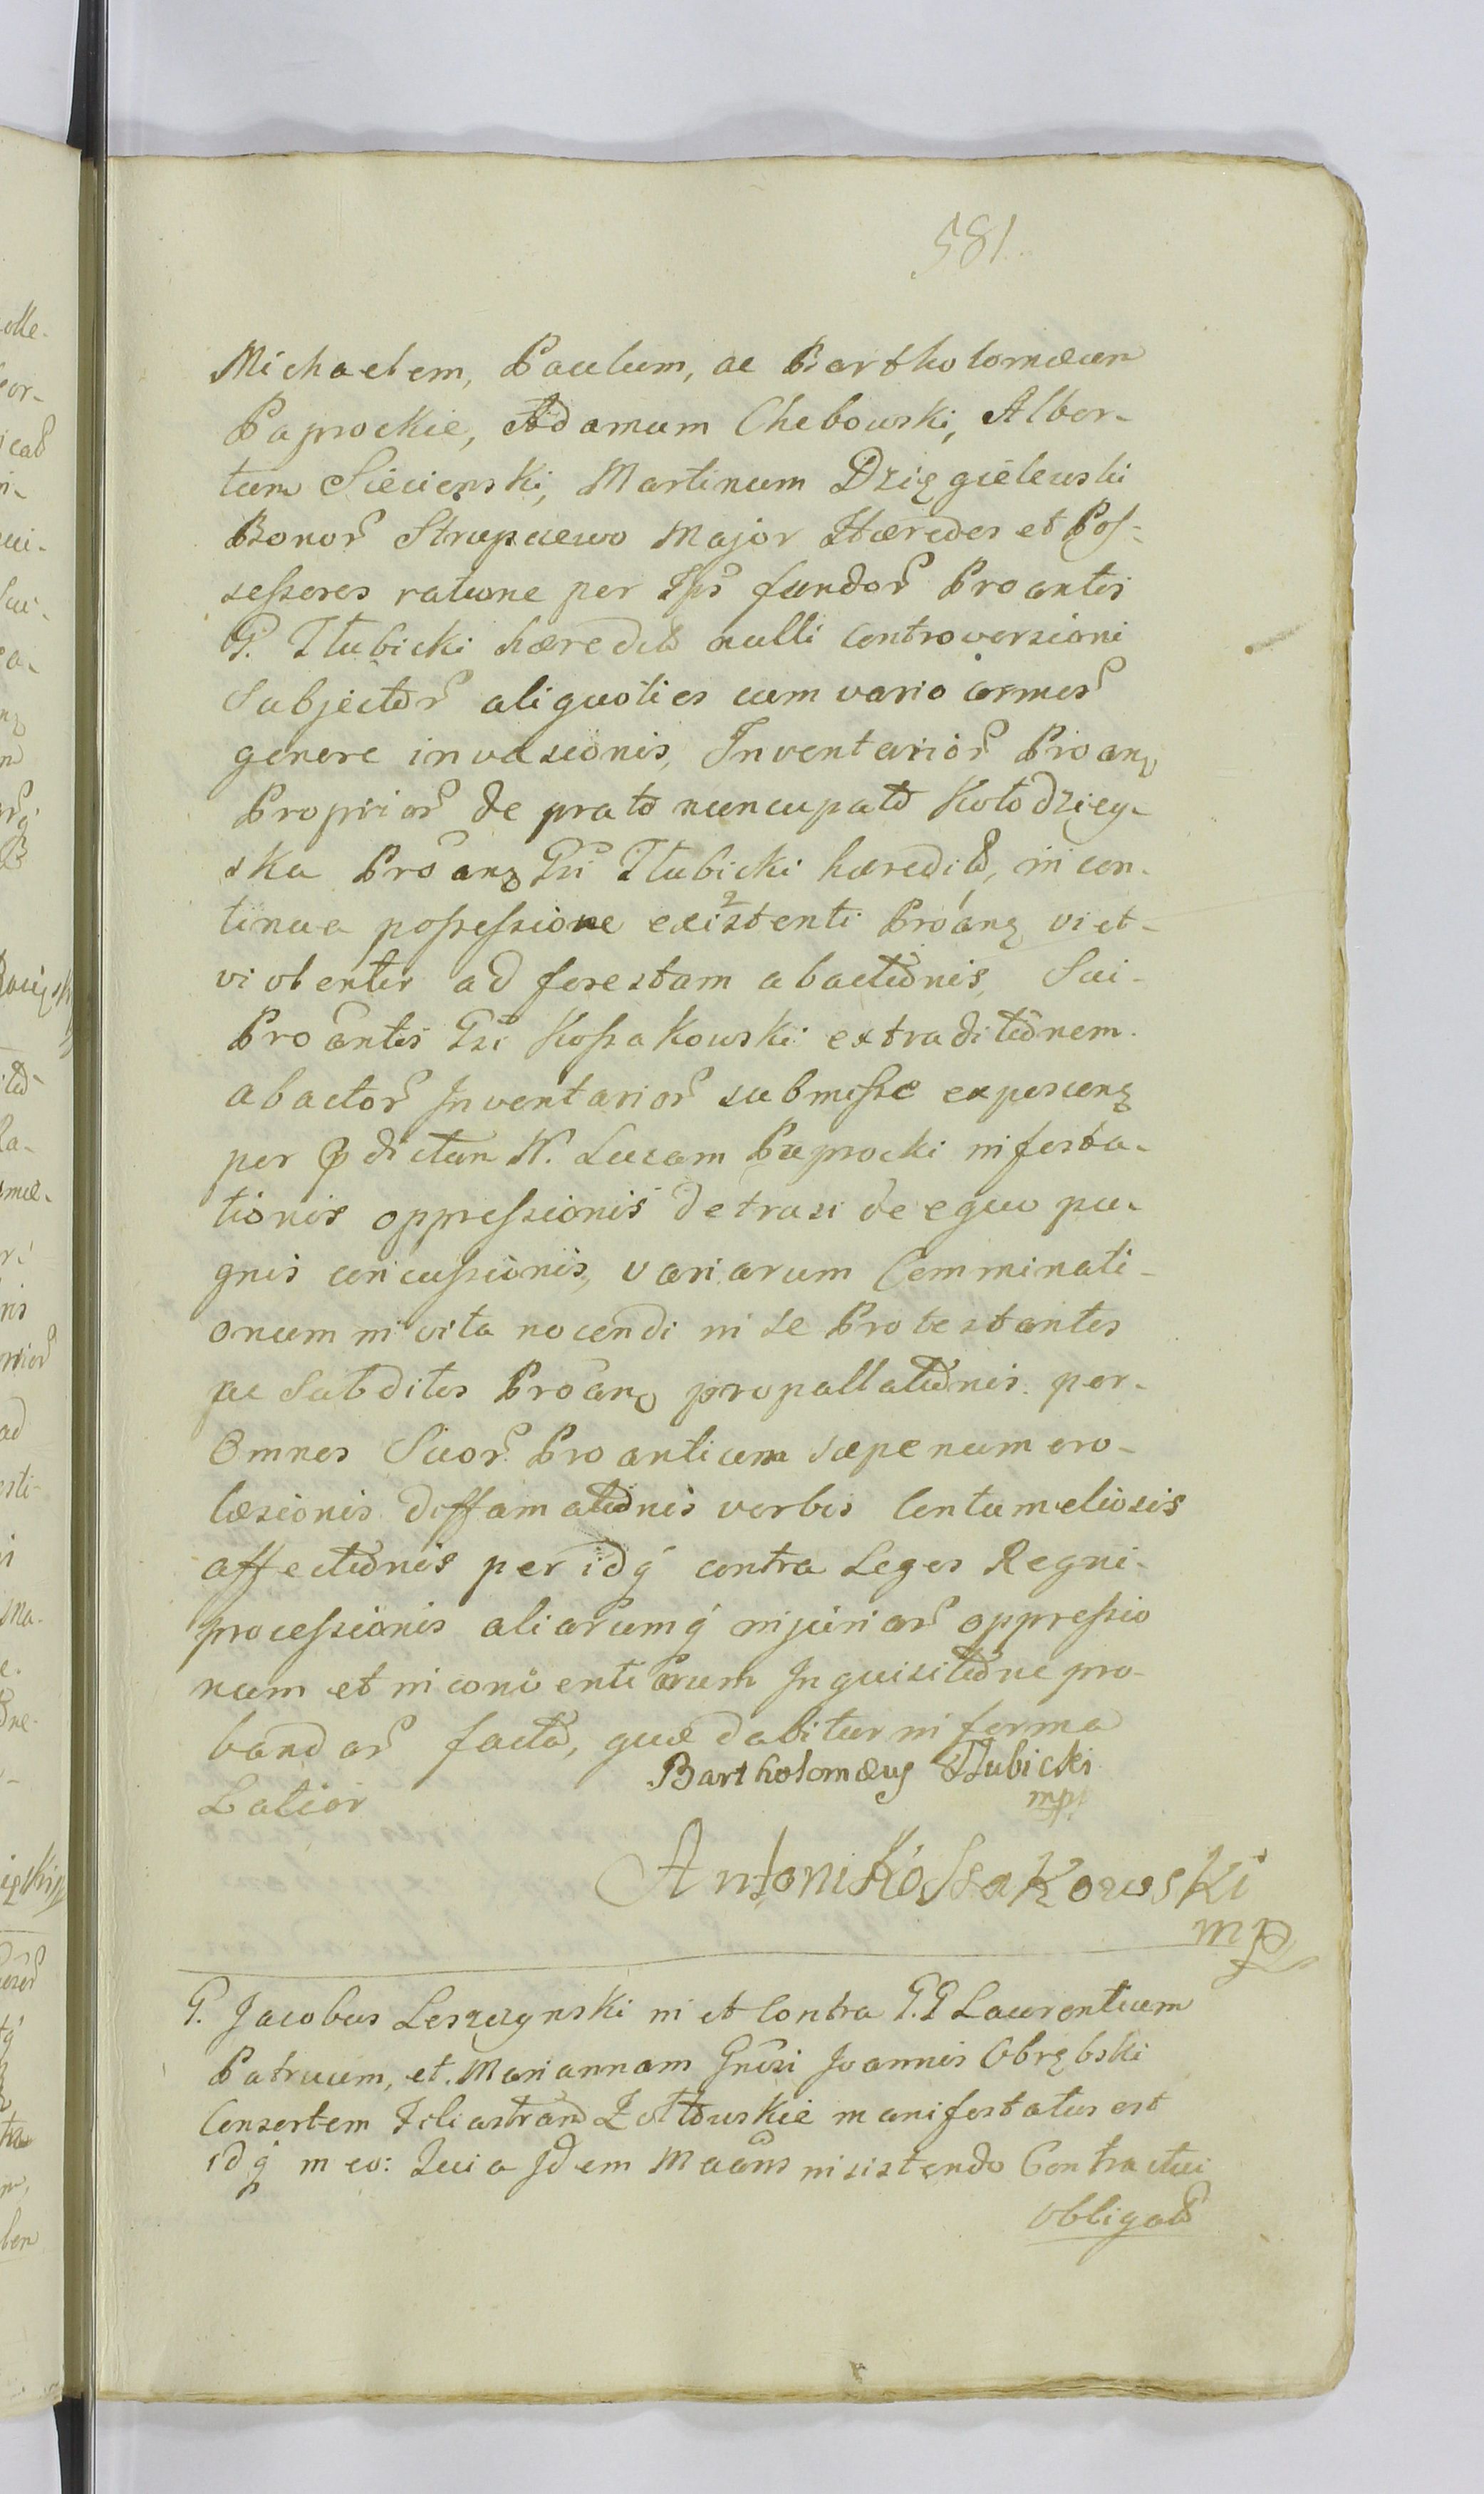 581.
Michaelem, Paulum, ac Bartholomæum
Paprockie, Adamum Chebowski, Alber-
tum Siecienski, Martinum Dzięgielewski
Bonor Strupczewo Major Hæredes et Pos-
sessores ratione per Ips fundor Proantis
G. Tłubicki hæredit nulli controversioni
Subjector aliquoties cum vario armor
genere invasionis, Inventarior Proanz
Proprior de prato nuncupato Kołodziey-
ska Proanz Gsi Tłubicki hæredit, in con-
tinua possessione existenti Proanz vi et
violenter ad forestam abactionis, Sui
Proantis Gsi Kossakowski extraditionem
abactor Inventarior submisse exposcenz
per Pdictum N. Lucam Paprocki infesta-
tionis oppressionis detrusi de equo pu-
gnis concussionis, variarum Comminati-
onum in vita nocendi in se Protestantes
ac Subditos Proanz propallationis per
Omnes Suor Proantium sæpenumero
læsionis diffamationis verbis Contumeliosis
affectionis per idq contra Leges Regni
processionis aliarumq injuriar oppressio
num et inconvenientiarum Inquisitione pro-
bandar facta, quæ dabitur in forma
Latior
Bartholomæus Tłubicki
mp
Antoni Kossakowski
mp
G. Jacobus Leszczynski in et Contra G.G Laurentium
Patruum, et Mariannam Gnosi Joannis Obrębski
Consortem Filiastram Żołtowskie manifestatus est
idq in eo: Quia Idem Maans insistendo Contractui
obligat